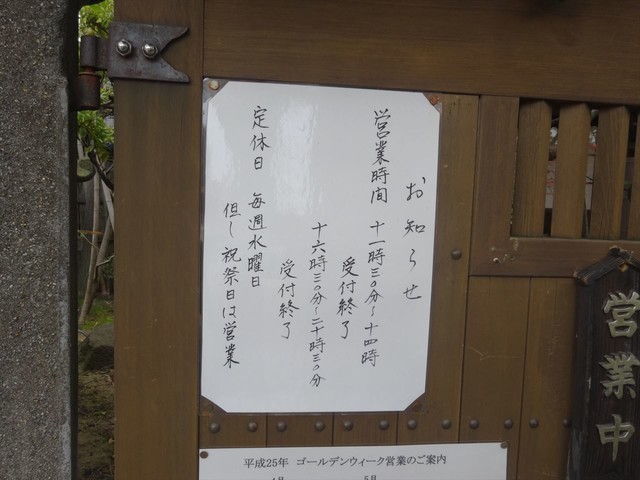 お知らせ
営業時間 十一時三〇分~十四時
受付終了
十六時三〇分~二十時三〇分
受付終了
定休日 毎週水曜日
但し祝祭日は営業
営業中
平成25年 ゴールデンウィーク営業のご案内
4月 5月